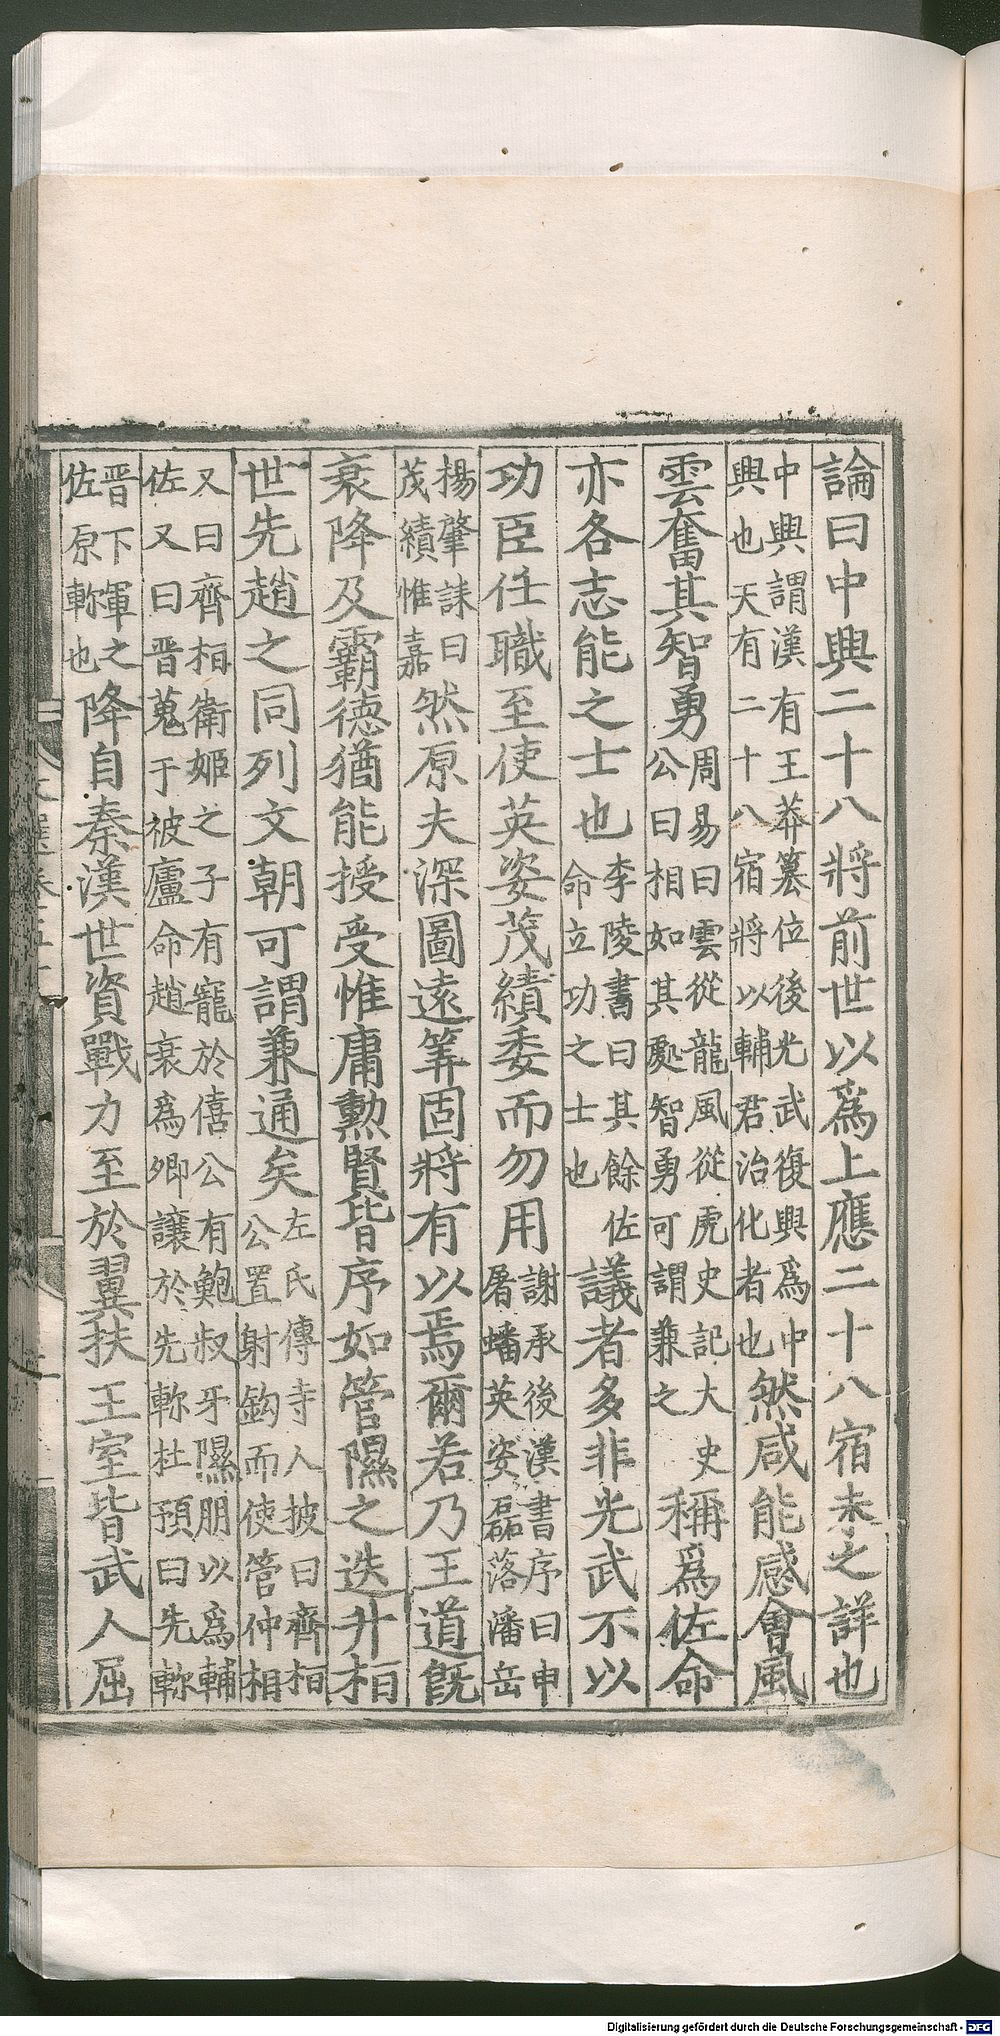 論曰中興二十八將前世以爲上應二十八宿未之詳也
中興謂漢有王莽篡位後光武復興爲中
興也天有二十八宿將以輔君治化者也
然咸能感會風
雲奮其智勇
周易曰雲從龍風從虎史記大史
公曰相如其處智勇可謂兼之
稱爲佐命
亦各志能之士也
李陵書曰其餘佐
命立功之士也
議者多非光武不以
功臣任職至使英姿茂績委而勿用
謝承後漢書序曰申
屠蟠英姿磊落潘岳
楊肇誄曰
茂績惟嘉
然原夫深圖遠筭固將有以焉爾若乃王道旣
衰降及霸德猶能授受惟庸勳賢皆序如管隰之迭升桓
世先趙之同列文朝可謂兼通矣
左氏傳寺人披曰齊桓
公置射鉤而使管仲相
又曰齊桓衛姬之子有寵於僖公有鮑叔牙隰朋以爲輔
佐又曰晋蒐于被廬命趙衰爲卿讓於先軫杜預曰先軫
晋下軍之
佐原軫也
降自秦漢世資戰力至於翼扶王室皆武人屈
Digitalisierung gefördert durch die Deutsche Forschungsgemeinschaft - DFG